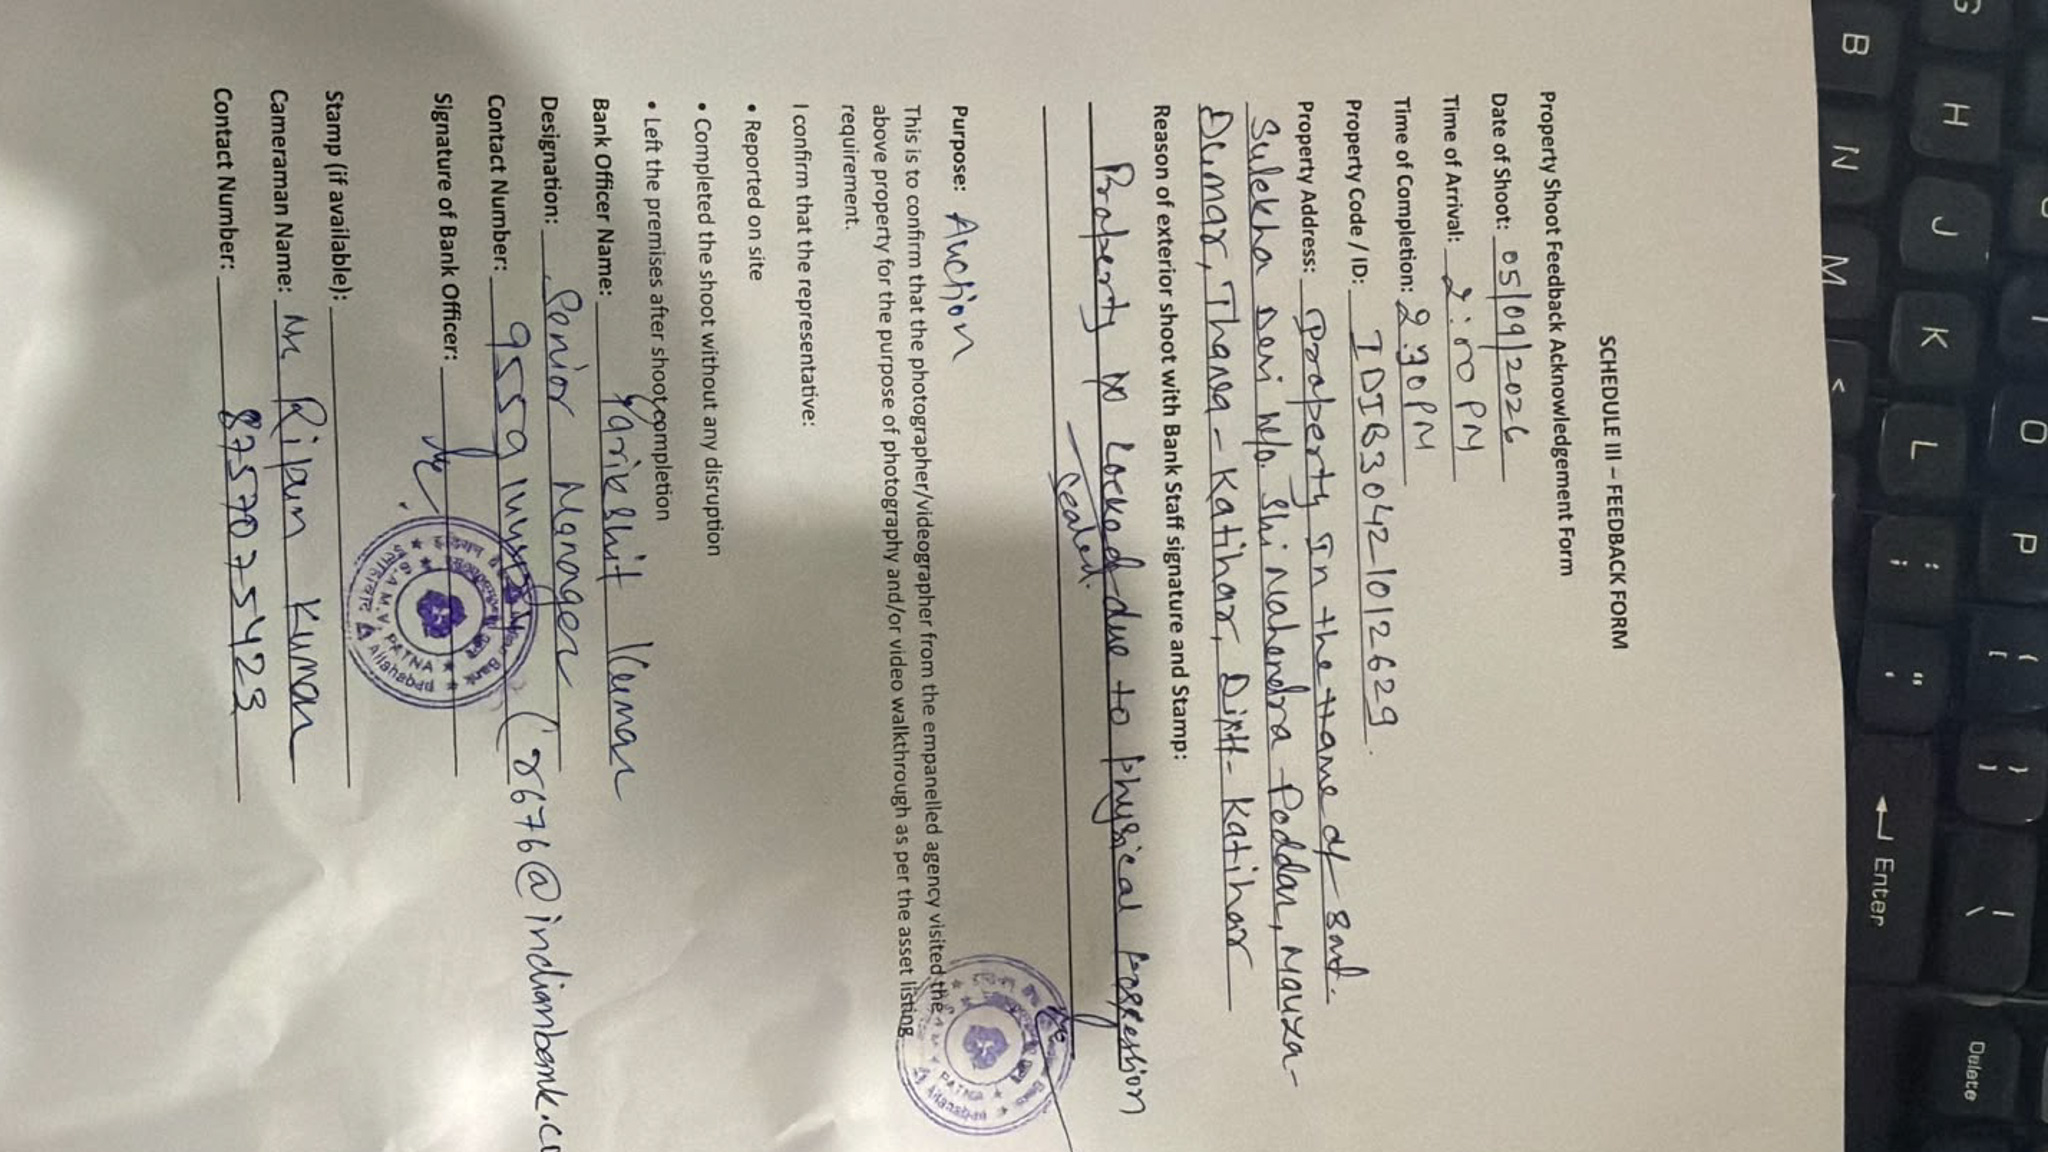 SCHEDULE III – FEEDBACK FORM
Property Shoot Feedback Acknowledgement Form
Date of Shoot: 05/09/2026
Time of Arrival: 2:00 PM
Time of Completion: 2:30 PM
Property Code / ID: IDIB30421012629.
Property Address: Property In the name of Smt.
Sulekha Devi W/o. Shri Mahendra Poddar, Mauza-
Dumar, Thana - Katihar, Distt- Katihar
Reason of exterior shoot with Bank Staff signature and Stamp:
Property is Locked due to Physical Possession
Sealed.
Purpose: Auction
This is to confirm that the photographer/videographer from the empanelled agency visited the
above property for the purpose of photography and/or video walkthrough as per the asset listing
requirement.
I confirm that the representative:
• Reported on site
• Completed the shoot without any disruption
• Left the premises after shoot completion
Bank Officer Name: Parikshit Kumar
Designation: Senior Manager
Contact Number: 95591 (r676@indianbank.co
Signature of Bank Officer:
PATNA
Allahabad
Stamp (if available):
Cameraman Name: Mr Ripan Kumar
Contact Number: 8757075423
B N M <
H J K L ; : " '
O P { [ } ] | \
Enter
Delete